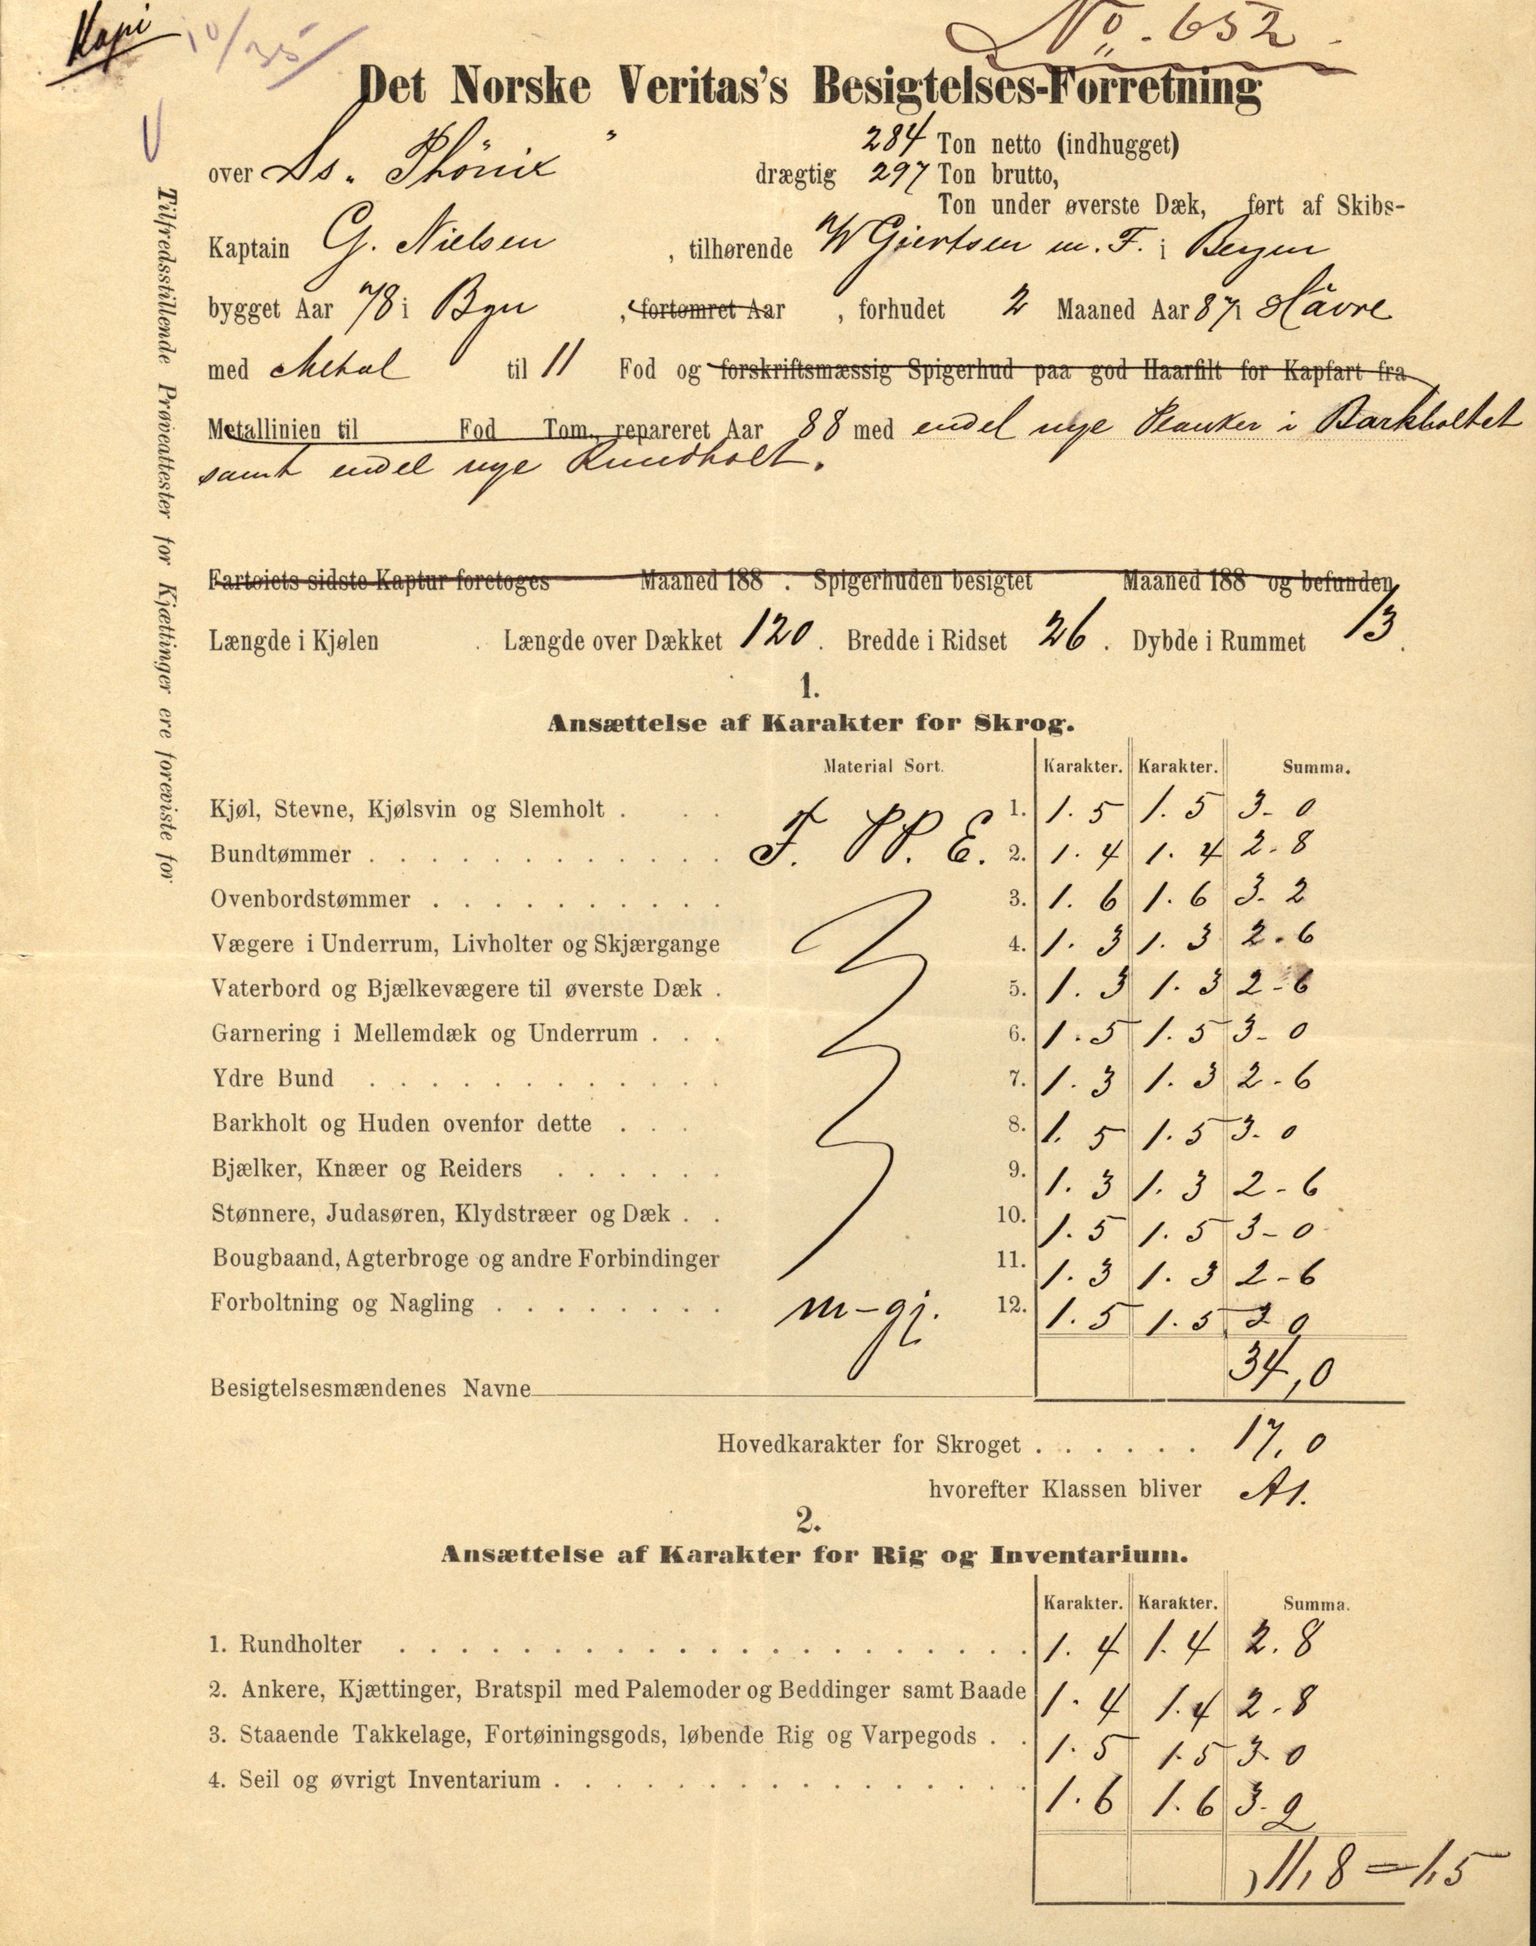 Kopi
10/35
No. 652
Det Norske Veritas's Besigtelses-Forretning
284 Ton netto (indhugget)
over Ss. "Phönix" drægtig 297 Ton brutto,
Ton under øverste Dæk, ført af Skibs-
Kaptain G. Nielsen, tilhørende W Giertsen m. F. i Bergen
bygget Aar 78 i Bgn, fortømret Aar , forhudet 2 Maaned Aar 87 i Hâvre
med Metal til 11 Fod og forskriftsmæssig Spigerhud paa god Haarfilt for Kapfart fra
Metallinien til Fod Tom., repareret Aar 88 med endel nye Planker i Barkholtet
samt endel nye Rundholt.
Fartøiets sidste Kaptur foretoges Maaned 188 . Spigerhuden besigtet Maaned 188 og befunden
Længde i Kjølen . Længde over Dækket 120 . Bredde i Ridset 26 . Dybde i Rummet 13 .
Tilfredsstillende Prøveattester for Kjættinger ere foreviste for
1.
Ansættelse af Karakter for Skrog.
Material Sort. Karakter. Karakter. Summa.
Kjøl, Stevne, Kjølsvin og Slemholt . . . 1. 1.5 1.5 3-0
Bundtømmer . . . F. PP. E. 2. 1.4 1.4 2.8
Ovenbordstømmer . . . 3. 1.6 1.6 3.2
Vægere i Underrum, Livholter og Skjærgange 4. 1.3 1.3 2.6
Vaterbord og Bjælkevægere til øverste Dæk . 5. 1.3 1.3 2-6
Garnering i Mellemdæk og Underrum . . . 6. 1.5 1.5 3-0
Ydre Bund . . . 7. 1.3 1.3 2-6
Barkholt og Huden ovenfor dette . . . 8. 1.5 1.5 3-0
Bjælker, Knæer og Reiders . . . 9. 1.3 1.3 2-6
Stønnere, Judasøren, Klydstræer og Dæk . . 10. 1.5 1.5 3-0
Bougbaand, Agterbroge og andre Forbindinger 11. 1.3 1.3 2-6
Forboltning og Nagling . . . m-gj. 12. 1.5 1.5 3-0
34,0
Besigtelsesmændenes Navne
Hovedkarakter for Skroget . . . . . . 17,0
hvorefter Klassen bliver A1.
2.
Ansættelse af Karakter for Rig og Inventarium.
Karakter. Karakter. Summa.
1. Rundholter . . . 1.4 1.4 2.8
2. Ankere, Kjættinger, Bratspil med Palemoder og Beddinger samt Baade 1.4 1.4 2.8
3. Staaende Takkelage, Fortøiningsgods, løbende Rig og Varpegods . . 1.5 1.5 3.0
4. Seil og øvrigt Inventarium . . . 1.6 1.6 3.2
11,8 = 1,5